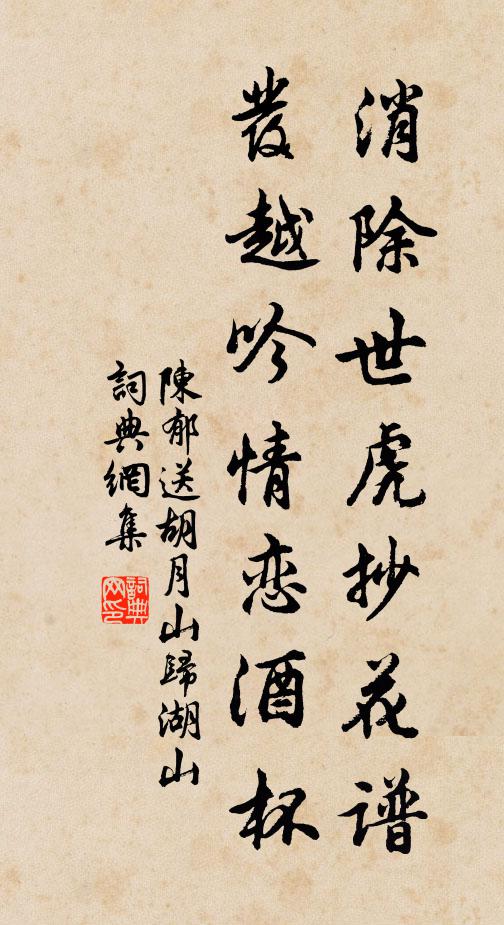 消除世虑抄花谱
發越吟情恋酒杯
陳郁送胡月山歸湖山
詞典網集
詞典
网印